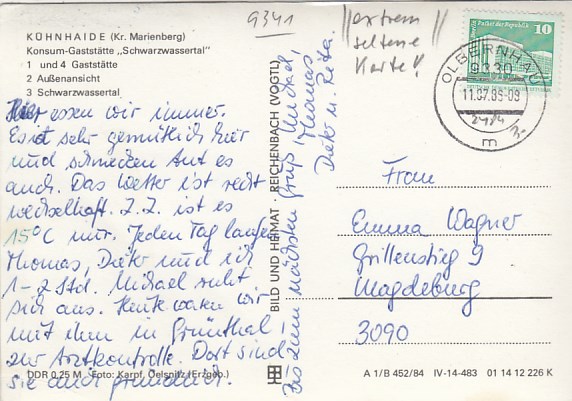 KÜHNHAIDE (Kr. Marienberg)
Konsum-Gaststätte „Schwarzwassertal"
1 und 4 Gaststätte
2 Außenansicht
3 Schwarzwassertal
Hier essen wir immer.
Es ist sehr gemütlich hier
und schmecken tut es
auch. Das Wetter ist recht
wechselhaft. Z.Z. ist es
15°C nur. Jeden Tag laufen
Thomas, Dieter und ich
1-2 Std. Michael ruht
sich aus. Heute waren wir
mit ihm in Grünthal
zur Arztkontrolle. Dort sind
sie auch gründlich.
Bis zum nächsten Gruß, Michael,
Thomas,
Dieter u. Rita.
DDR 0,25 M Foto: Karpf, Oelsnitz (Erzgeb.)
BILD UND HEIMAT · REICHENBACH (VOGTL)
9341
||extrem||
seltene
Karte!
10
OLBERNHAU
9330
11.07.85-09
m
Frau
Emma Wagner
Grillenstieg 9
Magdeburg
3090
A 1/B 452/84 IV-14-483 01 14 12 226 K